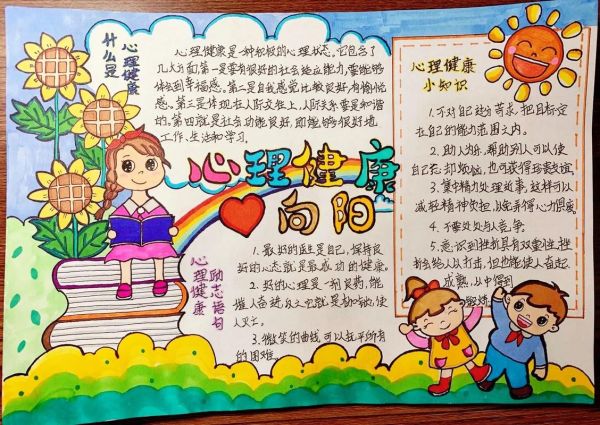 什么是
心理健康
心理健康是一种积极的心理状态。它包含了
几大方面,第一是要有很好的社会适应能力,要能够
体验到幸福感。第二是自我感觉比较良好,有愉悦
感。第三是体现在人际交往上,人际关系要是和谐
的。第四就是社会功能良好,即能够很好地
工作、生活和学习。
心理健康
向阳
心理健康
励志语句
1.最好的医生是自己,保持良
好的心态就是最成功的健康。
2.好的心理是一剂良药,能
催人奋进,反之它就是
人灭亡。
3.微笑的曲线可以抚平所有
的困难。
心理健康
小知识
1.不对自己过分苛求,把目标定
在自己的能力范围之内。
2.助人为乐,帮助别人可以使
自己忘却烦恼,也可获得珍贵友谊。
3.集中精力处理故事,这样可以
减轻精神负担,以免弄得心力俱疲。
4.不要处处与人竞争。
5.意识到挫折具有双重性,挫
折会给人以打击,但也能使人奋起、
成熟,从中得到
锻炼。